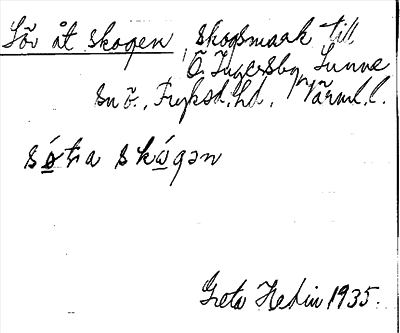 Sör åt skogen, skogsmark till
Ö. Ingersby, Sunne
sn ö., Fryksd. hd., Värml. l.
sötra skógən
Greta Hedin 1935.